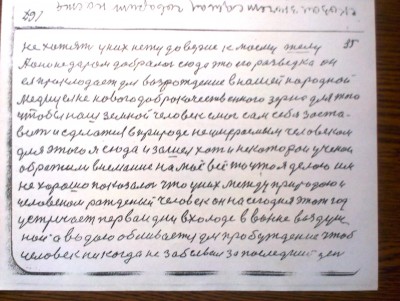 291
35
не хотят у них нету доверие к моему телу
А он недаром добрался сюда это его разведка он
ея прикладает для возрождение в нашей народной
медицине нового доброкачественного зерно для того
чтобы наш земной человек смог сам себя заста-
вить и сделатся в природе неумераемым человеком
для этого я сюда и зашел хоть и некоторои ученои
обратили внимание на моё всё то что я делаю им
не хорошо показалось что у них между природою и
человеком рожденей человек он на сегодня этот год
устричает первыи дни в холоде в ванне воздуш
ной а водою обливается для пробуждение чтоб
человек никогда не забывал за последний ден